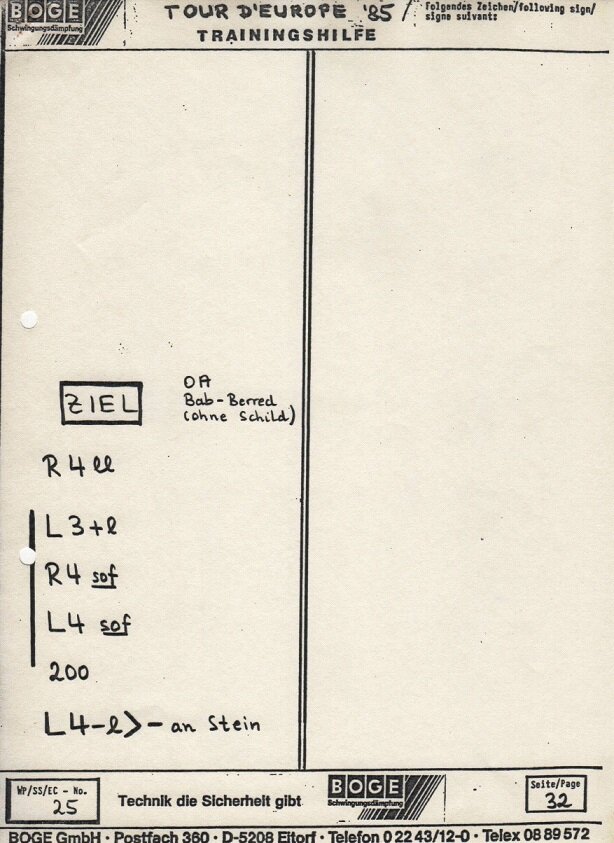 BOGE
Schwingungsdämpfung
TOUR D'EUROPE '85
TRAININGSHILFE
folgendes Zeichen/following sign/
signe suivant:
ZIEL
OA
Bab-Berred
(ohne Schild)
R4 ll
L 3+l
R4 sof
L4 sof
200
L4-l>- an Stein
WP/SS/EC - No.
25
Technik die Sicherheit gibt
BOGE
Schwingungsdämpfung
Seite/Page
32
BOGE GmbH · Postfach 360 · D-5208 Eitorf · Telefon 0 22 43/12-0 · Telex 08 89 572